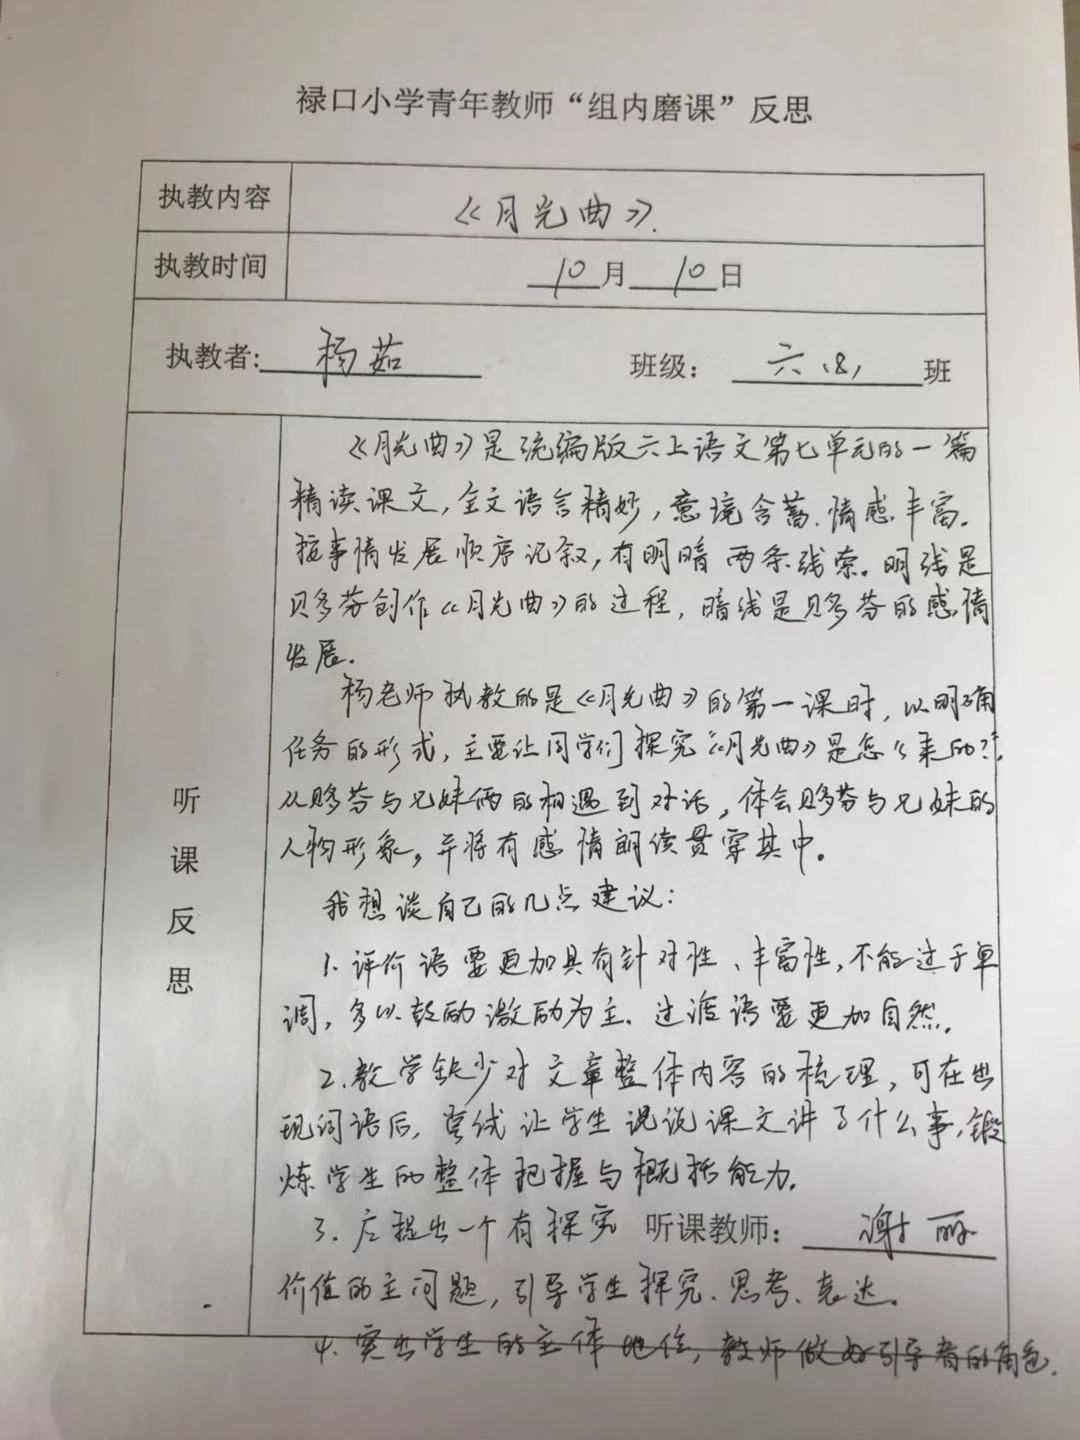 禄口小学青年教师“组内磨课”反思
执教内容 《月光曲》.
执教时间 10月10日
执教者: 杨茹 班级: 六、8, 班
听课反思
《月光曲》是统编版六上语文第七单元的一篇
精读课文,全文语言精妙,意境含蓄、情感丰富.
按事情发展顺序记叙,有明暗两条线索。明线是
贝多芬创作《月光曲》的过程,暗线是贝多芬的感情
发展.
杨老师执教的是《月光曲》的第一课时,以明确
任务的形式,主要让同学们探究“《月光曲》是怎么来的?”,
从贝多芬与兄妹俩的相遇到对话,体会贝多芬与兄妹的
人物形象。并将有感情朗读贯穿其中。
我想谈自己的几点建议:
1. 评价语要更加具有针对性、丰富性,不能过于单
调,多以鼓励激励为主.过渡语要更加自然.
2.教学缺少对文章整体内容的梳理,可在出
现词语后,尝试让学生说说课文讲了什么事,锻
炼学生的整体把握与概括能力.
3. 应提出一个有探究 听课教师: 谢丽
价值的主问题,引导学生探究、思考、表达。
4. 突出学生的主体地位,教师做好引导者的角色.